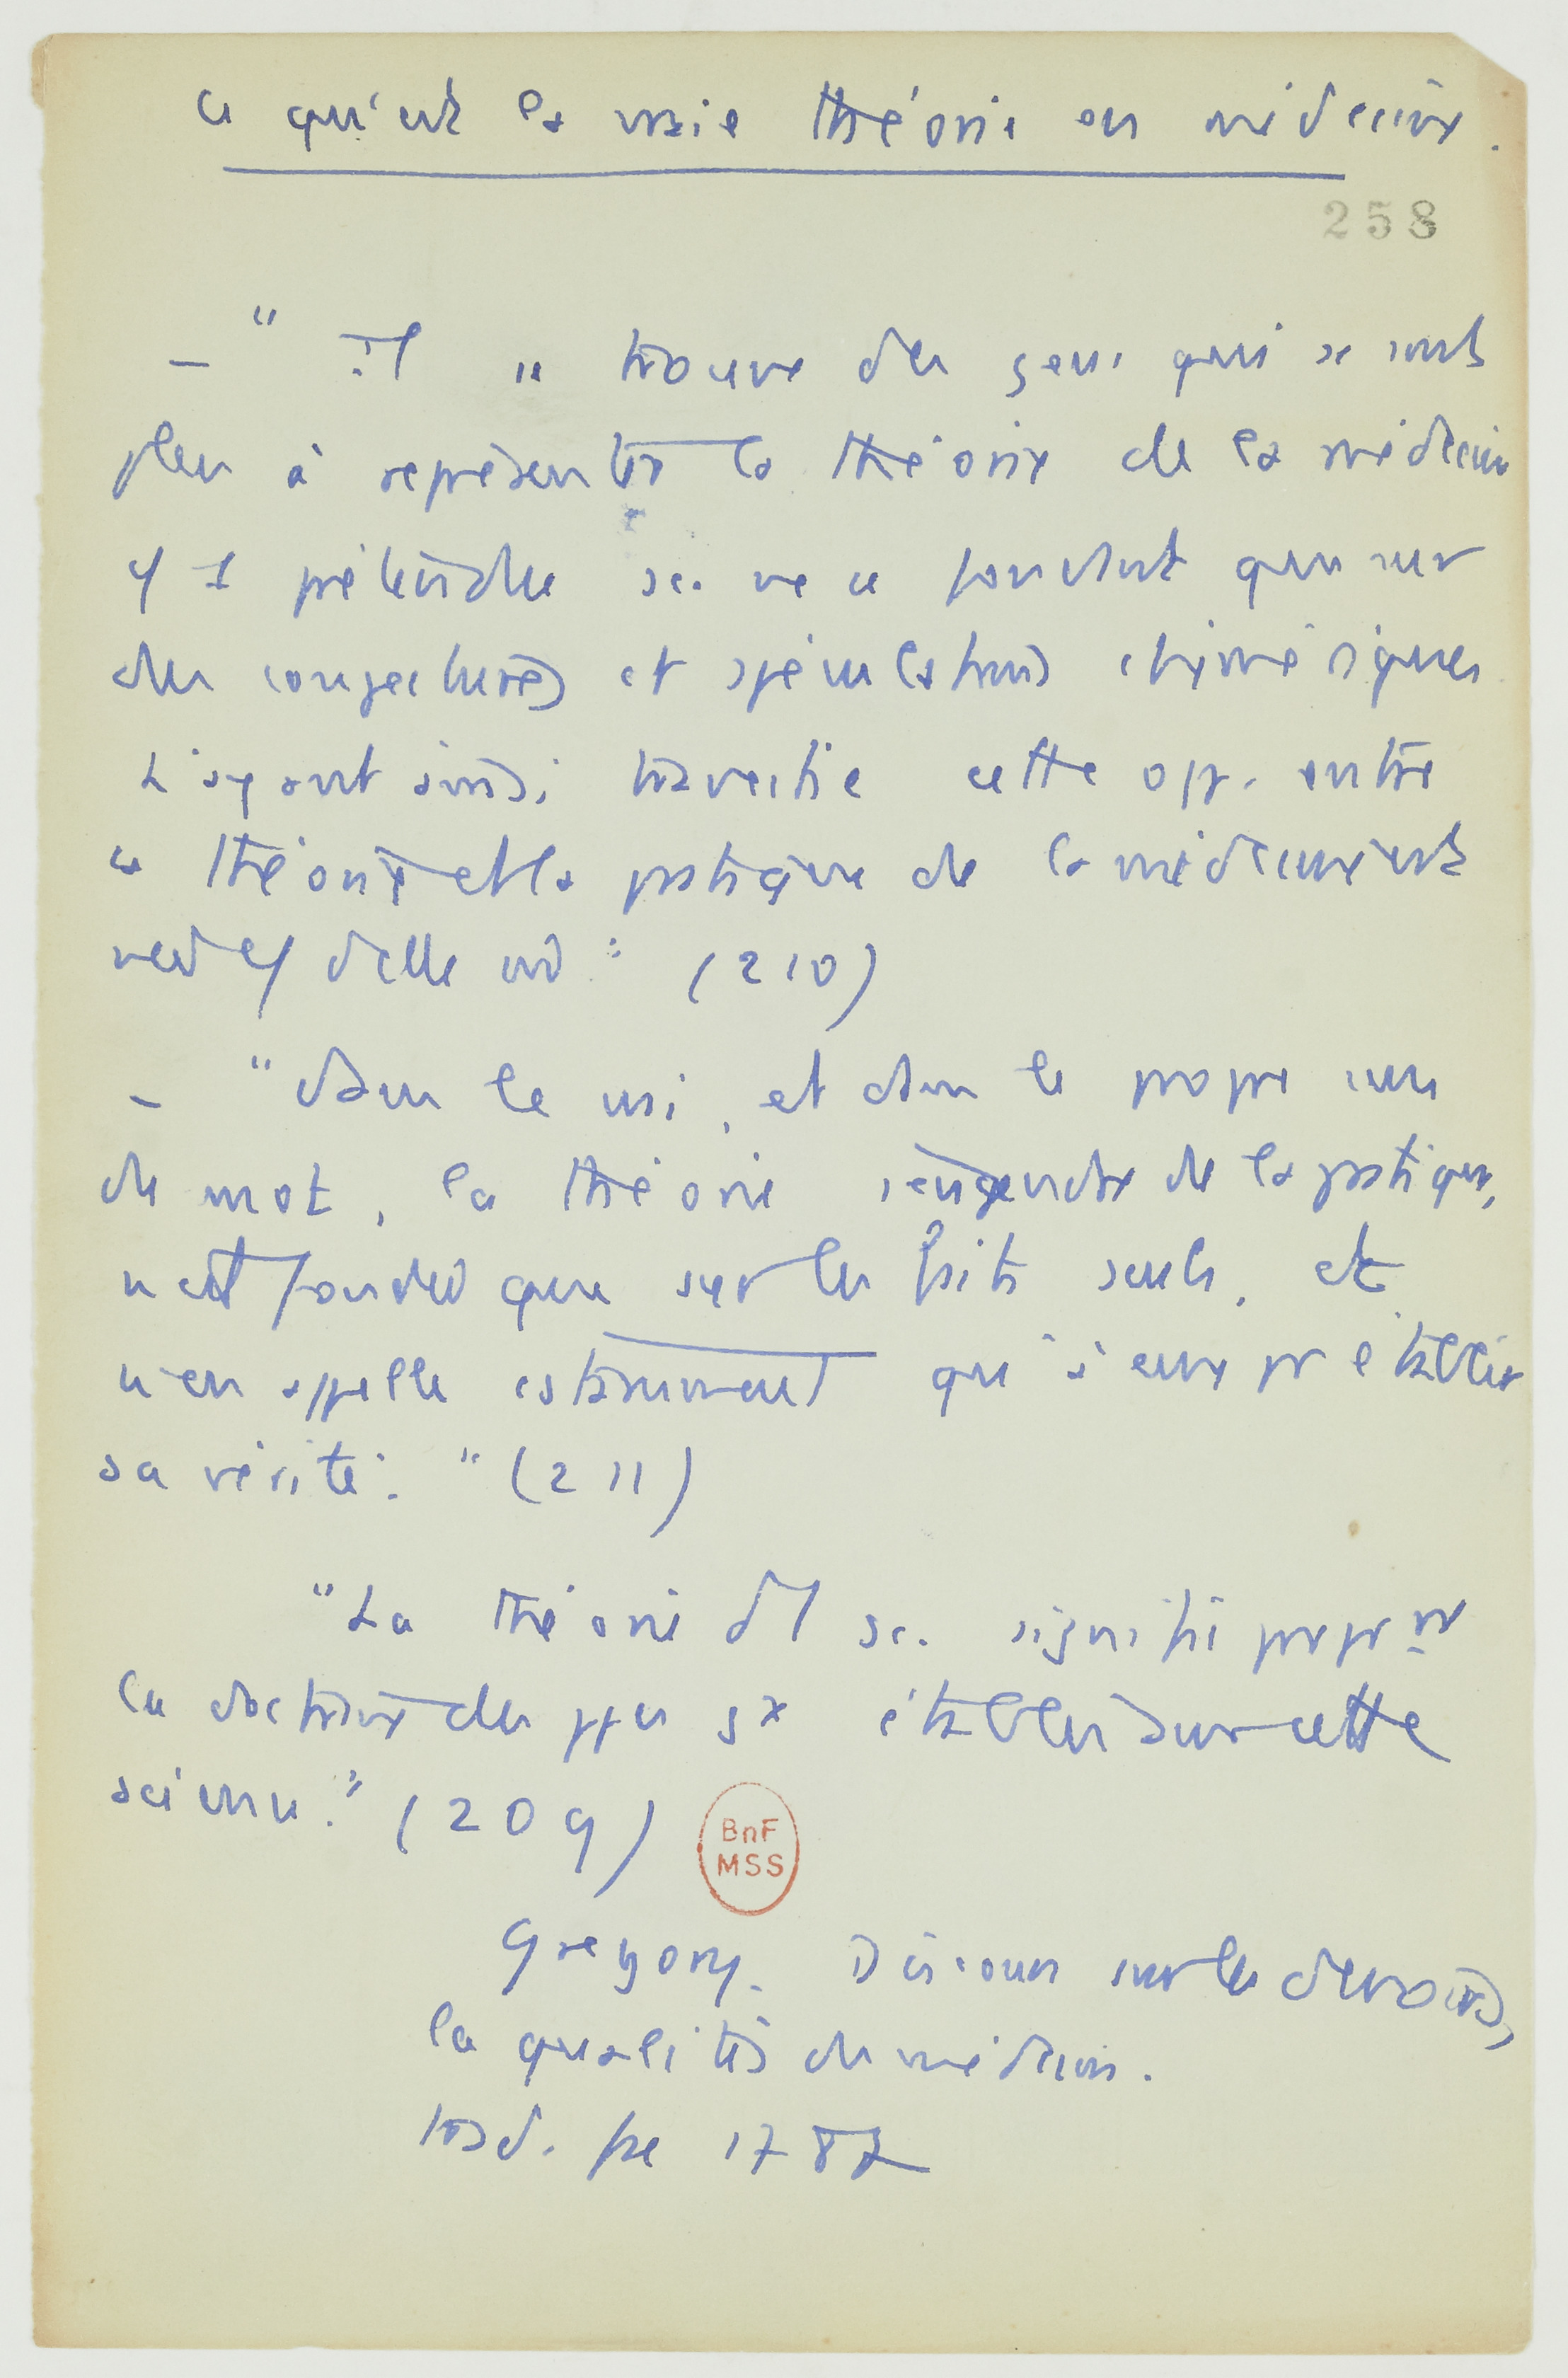 Ce qu'est la vraie théorie en médecine.
258
– " Il se trouve des gens qui se sont
plu à représenter la théorie de la médecine
prétendue sc. ne se fondant que sur
des conjectures et spéculations chimériques
L'ayant ainsi travestie cette opp. entre
la théorie et la pratique de la médecine est
d'elle " (210)
– " Dans le vrai, et dans le propre sens
du mot, la théorie s'engendre de la pratique,
n'est fondée que sur les faits seuls, et
n'en appelle qu'à eux pr établir
sa vérité. " (211)
"La théorie d'1 sc. signifie proprmt
la doctrine des ppes gx établis sur cette
science." (209)
BnF
MSS
Gregory. Discours sur les devoirs,
les qualités du médecin.
trad. fse 1787